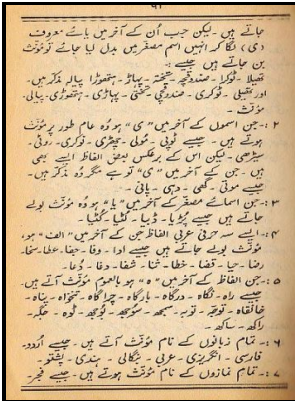 ۹۱
جاتے ہیں۔ لیکن جب اُن کے آخر میں یائے معروف
(ی) لگا کر انہیں اسم مصغّر میں بدل لیا جائے تو مؤنث
بن جاتے ہیں جیسے :۔
تھیلا۔ ٹوکرا۔ صندوقچہ۔ تختہ۔ پہاڑ۔ ہتھوڑا۔ پیالہ مذکر ہیں۔
اور تھیلی۔ ٹوکری۔ صندوقچی۔ تختی۔ پہاڑی۔ ہتھوڑی۔ پیالی۔
مؤنث۔
۲ :۔ جن اسموں کے آخر میں "ی" ہو وُہ عام طور پر مؤنث
ہوتے ہیں۔ جیسے ٹوپی۔ مُولی۔ چھڑی۔ نوکری۔ روٹی۔
سیڑھی۔ لیکن اس کے برعکس بعض الفاظ ایسے بھی
ہیں۔ جن کے آخر میں "ی" تو ہے مگر وُہ مذکر ہیں۔
جیسے موتی۔ گھی۔ دہی۔ پانی۔
۳ :۔ جن اسمائے مصغّر کے آخر میں "یا" ہو وُہ مؤنث بولے
جاتے ہیں جیسے چڑیا۔ ڈبیا۔ لٹیا۔ کُٹیا۔
۴ :۔ ایسے سہ حرفی عربی الفاظ جن کے آخر میں "الف" ہو،
مؤنث بولے جاتے ہیں جیسے ادا۔ وفا۔ جفا۔ عطا۔ سخا۔
رضا۔ حیا۔ قضا۔ خطا۔ ثنا۔ شفا۔ دغا۔ دُعا۔
۵ :۔ جن الفاظ کے آخر میں "ہ" ہو بالعموم مؤنث آتے ہیں۔
جیسے راہ۔ نگاہ۔ درگاہ۔ بارگاہ۔ چراگاہ۔ تنخواہ۔ پناہ۔
خانقاہ۔ توجہ۔ توبہ۔ سمجھ۔ سُوجھ۔ بُوجھ۔ ٹوہ۔ جگہ۔
راکھ۔ ساکھ۔
۶ :۔ تمام زبانوں کے نام مؤنث آتے ہیں۔ جیسے اُردو۔
فارسی۔ انگریزی۔ عربی۔ بنگالی۔ ہندی۔ پشتو۔
۷ :۔ تمام نمازوں کے نام مؤنث ہوتے ہیں۔ جیسے فجر